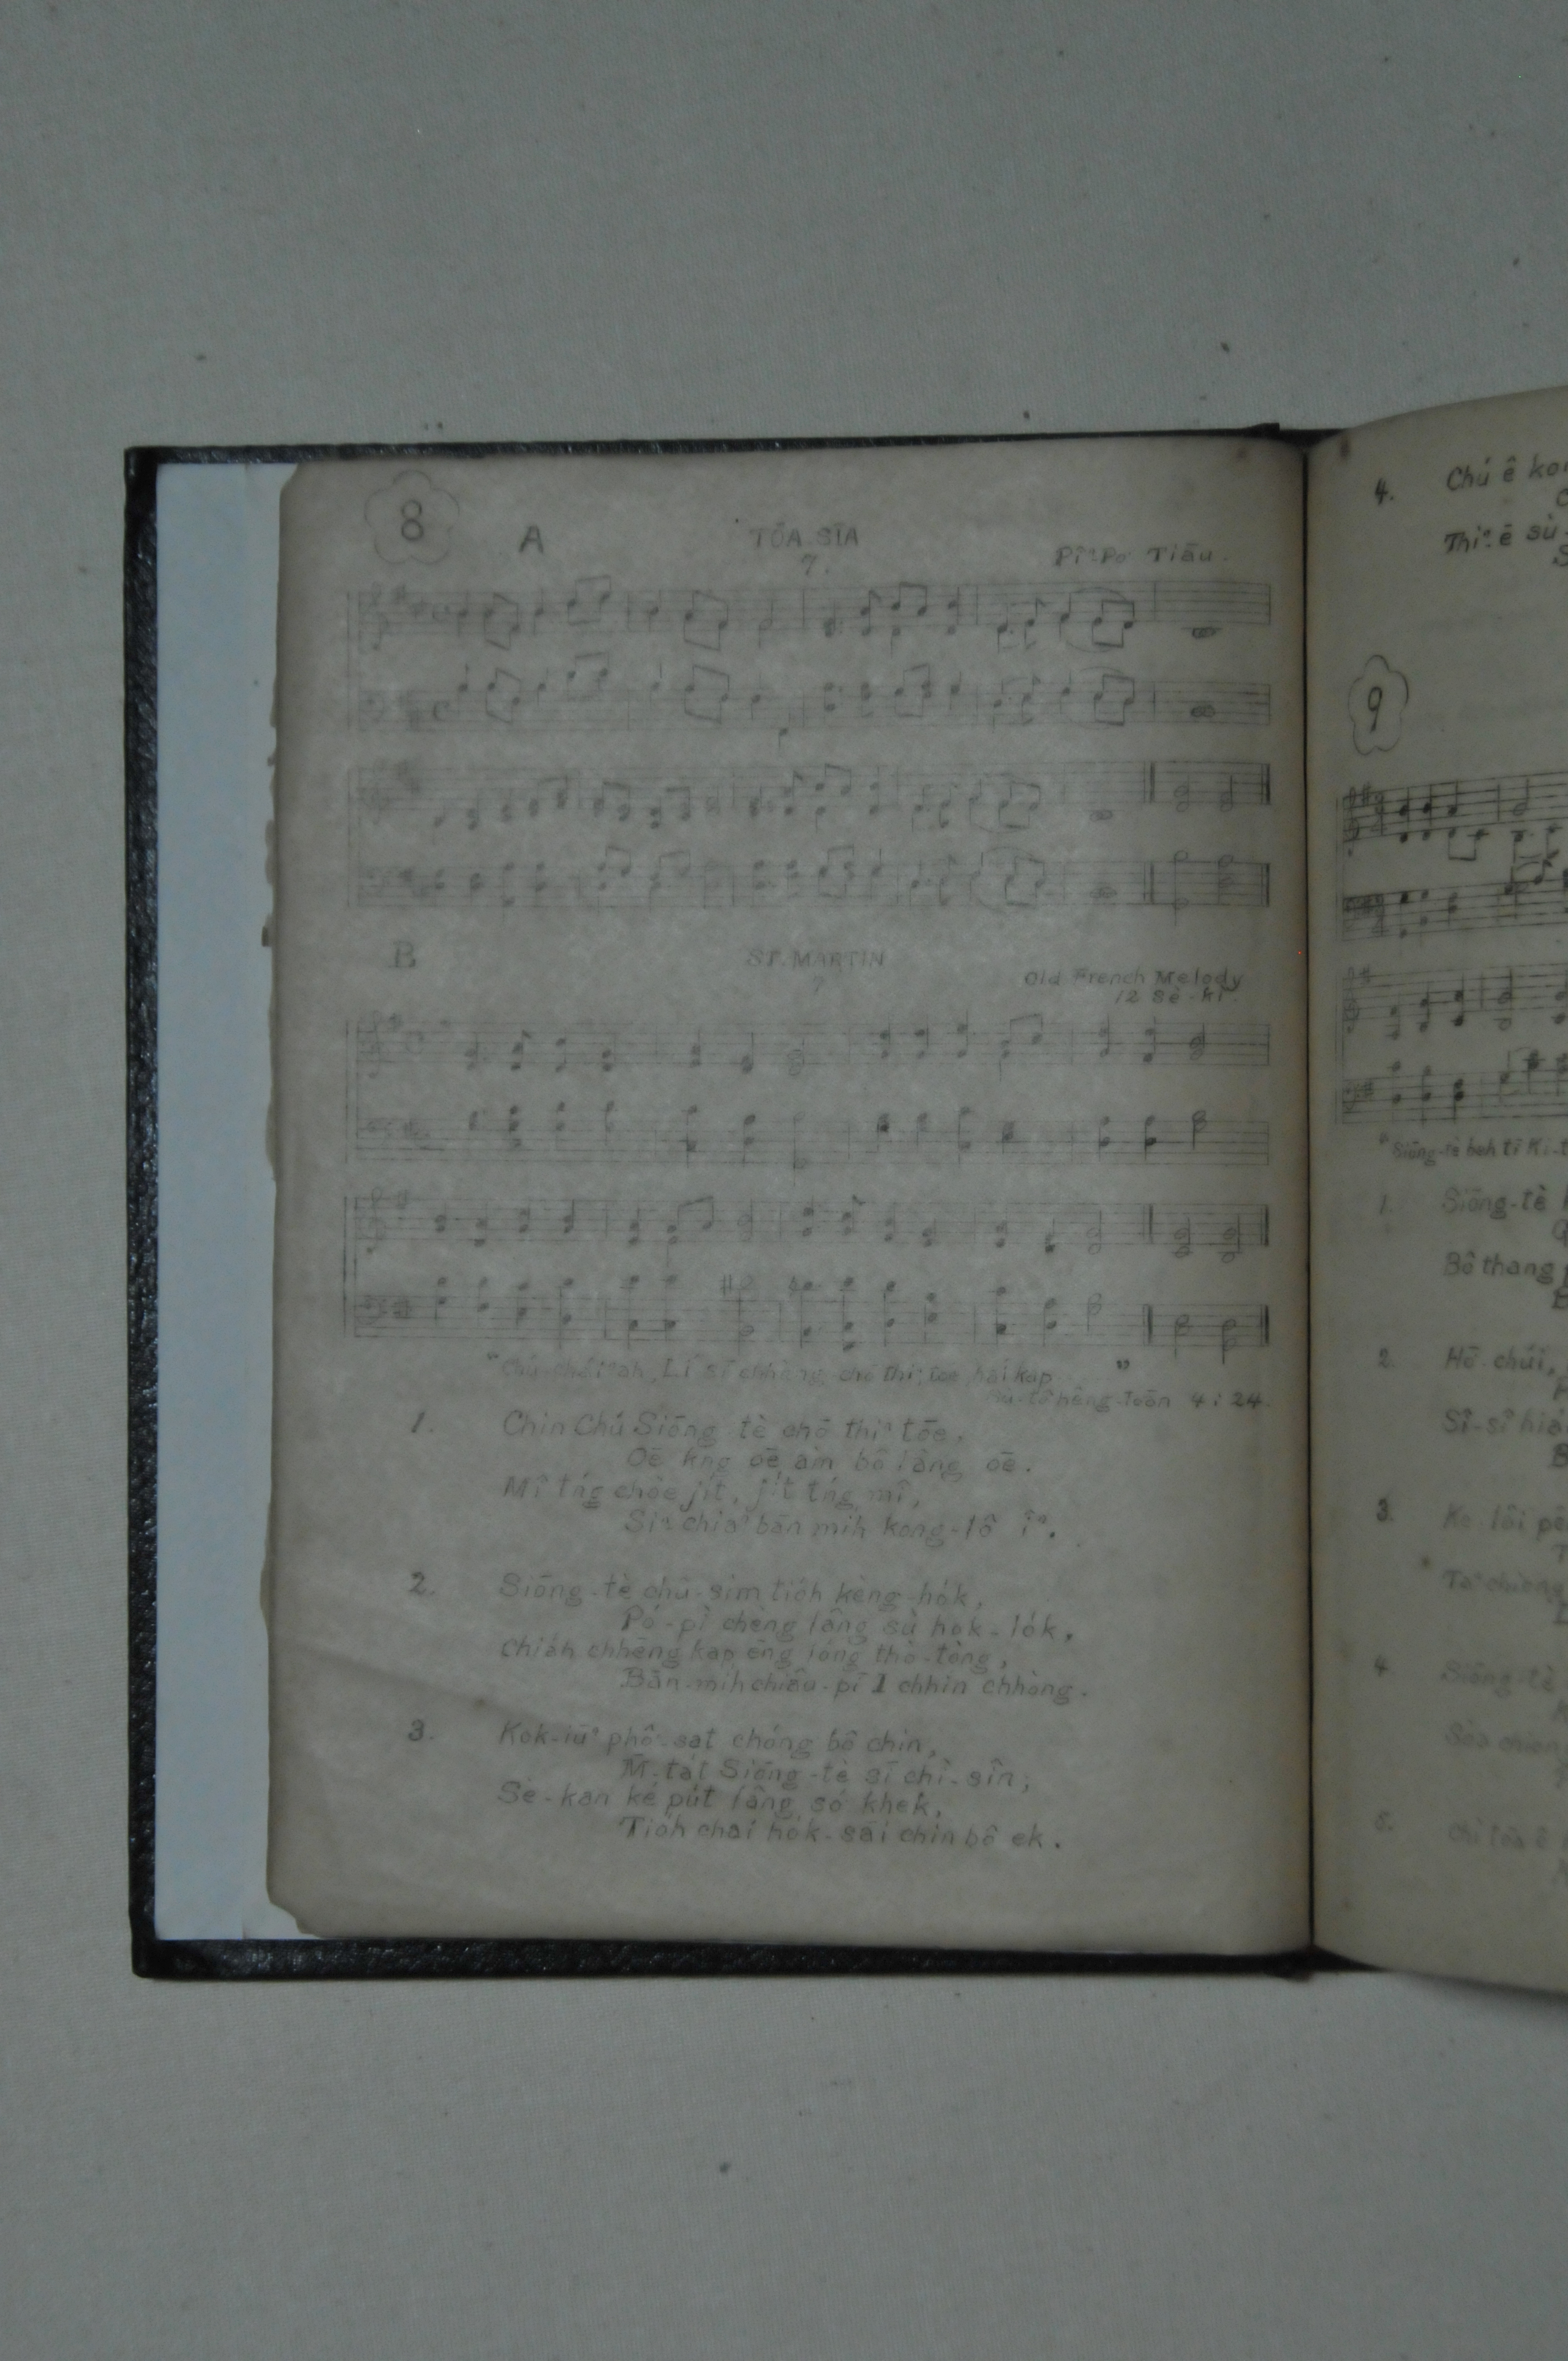 8
A
TŌA-SĪA
7.
Pîⁿ-Po͘ Tiāu.
B
ST. MARTIN
7
Old French Melody
12 Sè-kí
"Chú-chái-ah, Lí sī chhòng chō thiⁿ, tōe, hái kap "
Sù-tô͘ hêng-toān 4:24.
1. Chin Chú Siōng tè chō thiⁿ tōe,
Oē kng oē àm bô lâng oē.
Mî tńg chòe ji̍t, ji̍t tńg mî,
Siⁿ chiâⁿ bān mih kong-lô îⁿ.
2. Siōng-tè chū-sim tio̍h kèng-ho̍k,
Pó-pì chèng lâng sù hok-lo̍k,
Chia̍h chhēng kap ēng lóng thò-tòng,
Bān-mih chiâu-pī 1 chhin chhòng.
3. Kok-iūⁿ phô͘-sat chóng bô chin,
M̄-ta̍t Siōng-tè sī chì-sîn;
Sè-kan ké pu̍t lâng só͘ khek,
Tio̍h chai ho̍k-sāi chin bô ek.
4. Chú ê
Thiⁿ ē sù-
9
"Siōng-tè beh tī Ki-
1. Siōng-tè
Bô thang
2. Hō͘-chúi,
Sî-sî
3.
4 Siōng-tè
5.